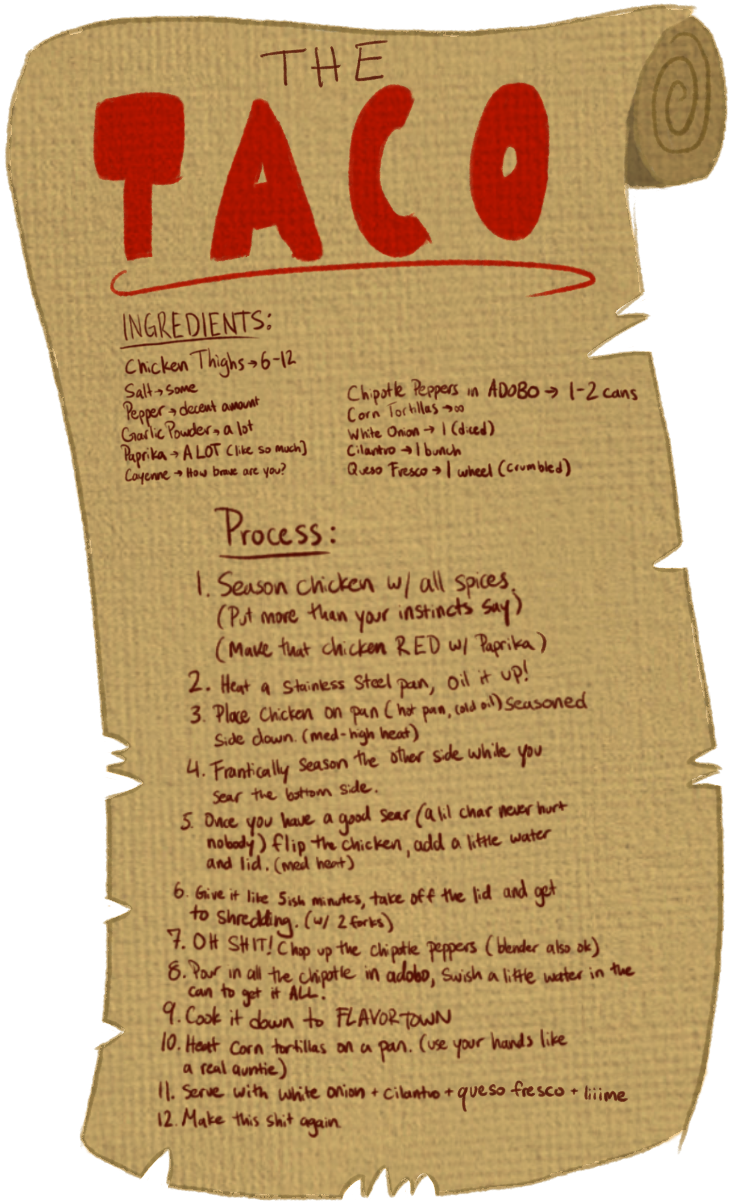 THE
TACO
INGREDIENTS:
Chicken Thighs → 6-12
Salt → some
Pepper → decent amount
Garlic Powder → a lot
Paprika → A LOT (like so much]
Cayenne → How brave are you?
Chipotle Peppers in ADOBO → 1-2 cans
Corn Tortillas → ∞
White Onion → 1 (diced)
Cilantro → 1 bunch
Queso Fresco → 1 wheel (crumbled)
Process:
1. Season chicken w/ all spices.
(Put more than your instincts say)
(Make that chicken RED w/ Paprika)
2. Heat a Stainless Steel pan, Oil it up!
3. Place Chicken on pan (hot pan, cold oil) seasoned
side down. (med-high heat)
4. Frantically season the other side while you
sear the bottom side.
5. Once you have a good sear (a lil char never hurt
nobody) flip the chicken, add a little water
and lid. (med heat)
6. Give it like 5ish minutes, take off the lid and get
to shredding. (w/ 2 forks)
7. OH SHIT! Chop up the chipotle peppers (blender also ok)
8. Pour in all the chipotle in adobo, Swish a little water in the
can to get it ALL.
9. Cook it down to FLAVORTOWN
10. Heat Corn tortillas on a pan. (use your hands like
a real auntie)
11. Serve with white onion + cilantro + queso fresco + liiime
12. Make this shit again.